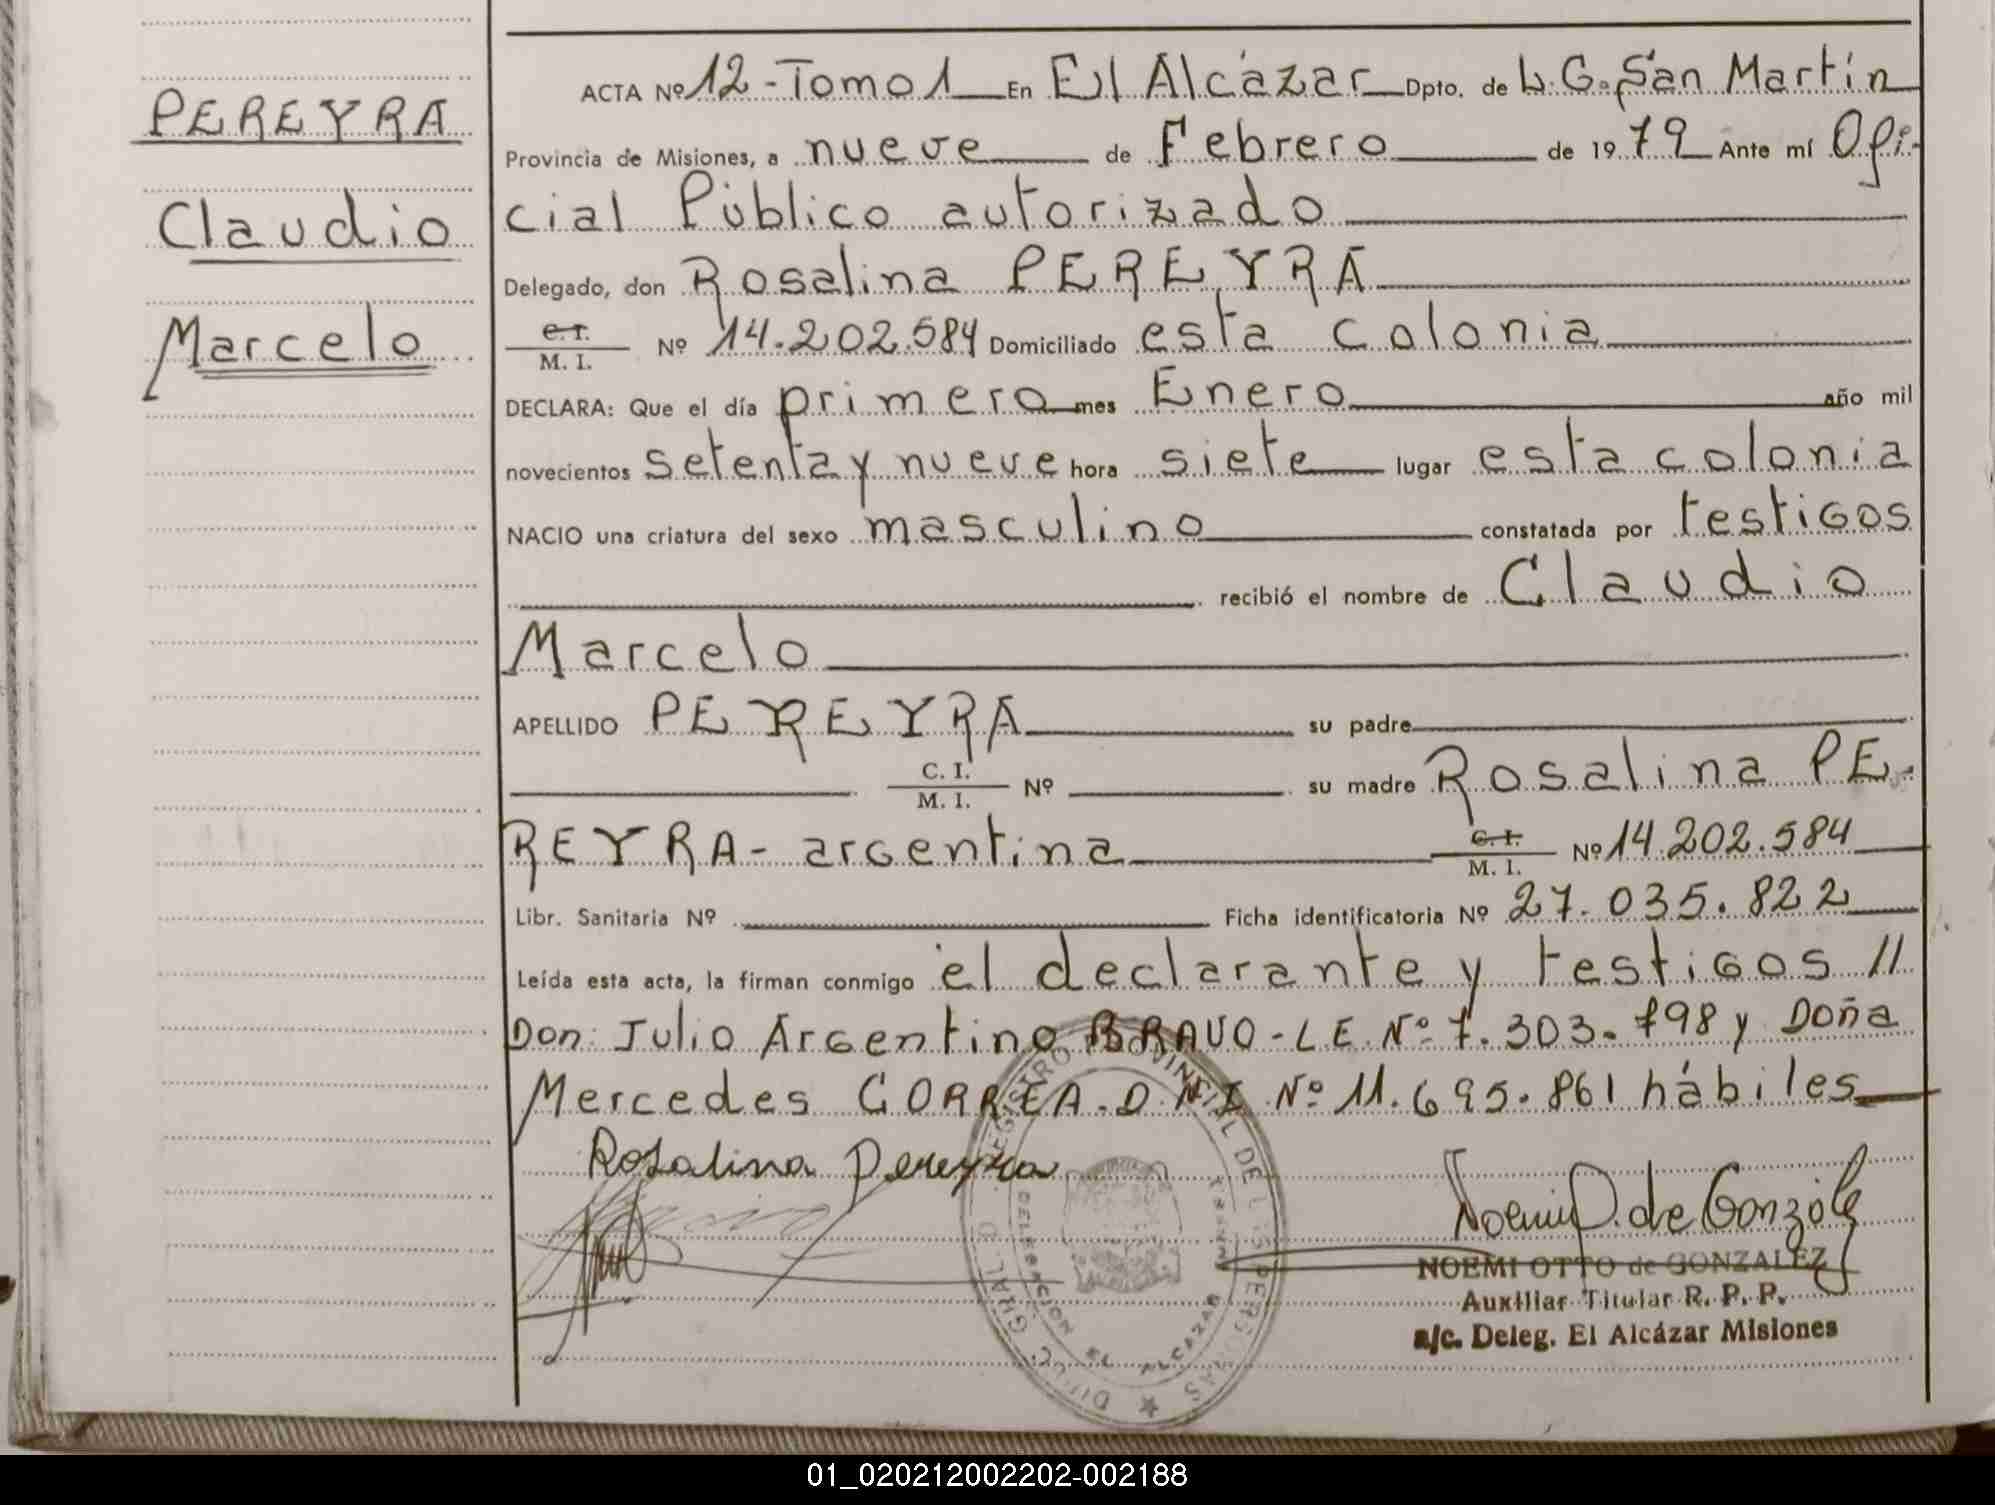 PEREYRA
Claudio
Marcelo
ACTA Nº 12 - Tomo 1 En El Alcázar Dpto. de L. G. San Martín
Provincia de Misiones, a nueve de Febrero de 1979 Ante mí Ofi-
cial Público autorizado
Delegado, don Rosalina PEREYRA
C. I. / M. I. Nº 14.202.584 Domiciliado esta colonia
DECLARA: Que el día primero mes Enero año mil
novecientos setenta y nueve hora siete lugar esta colonia
NACIO una criatura del sexo masculino constatada por testigos
recibió el nombre de Claudio
Marcelo
APELLIDO PEREYRA su padre
C. I. / M. I. Nº su madre Rosalina PE-
REYRA - argentina C. I. / M. I. Nº 14.202.584
Libr. Sanitaria Nº Ficha identificatoria Nº 27.035.822
Leída esta acta, la firman conmigo el declarante y testigos //
Don: Julio Argentino BRAVO - L E. Nº 7.303.798 y Doña
Mercedes CORREA. D N I Nº 11.695.861 hábiles
Rosalina Pereyra
Noemi O. de González
NOEMI OTTO de GONZALEZ
Auxiliar Titular R. P. P.
a/c. Deleg. El Alcázar Misiones
DIREC. GRAL. D REGISTRO PROVINCIAL DE LAS PERSONAS
DELEGACION EL ALCAZAR
01_020212002202-002188